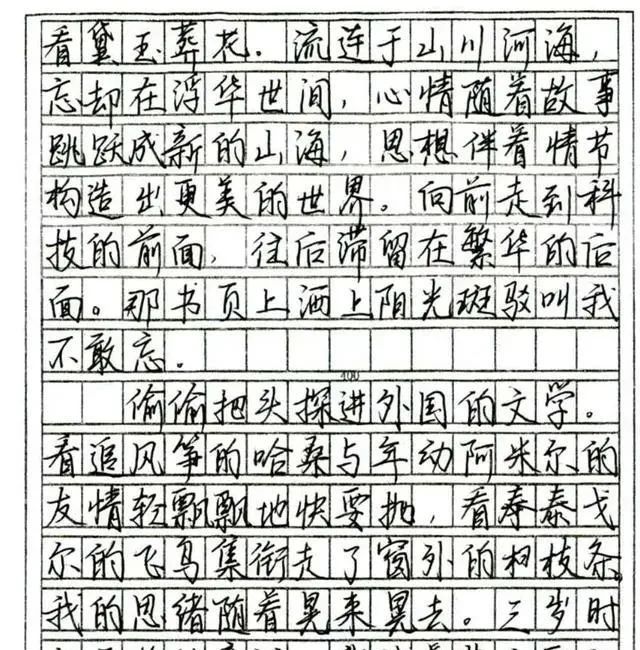 看黛玉葬花. 流连于山川河海,
忘却在浮华世间, 心情随着故事
跳跃成新的山海, 思想伴着情节
构造出更美的世界。向前走到科
技的前面, 往后滞留在繁华的后
面。那书页上洒上阳光斑驳叫我
不敢忘.
400
偷偷把头探进外国的文学。
看追风筝的哈桑与年动阿米尔的
友情轻飘飘地快要抛, 看泰泰戈
尔的飞鸟集衔走了窗外的树枝条。
我的思绪随着晃来晃去。三岁时